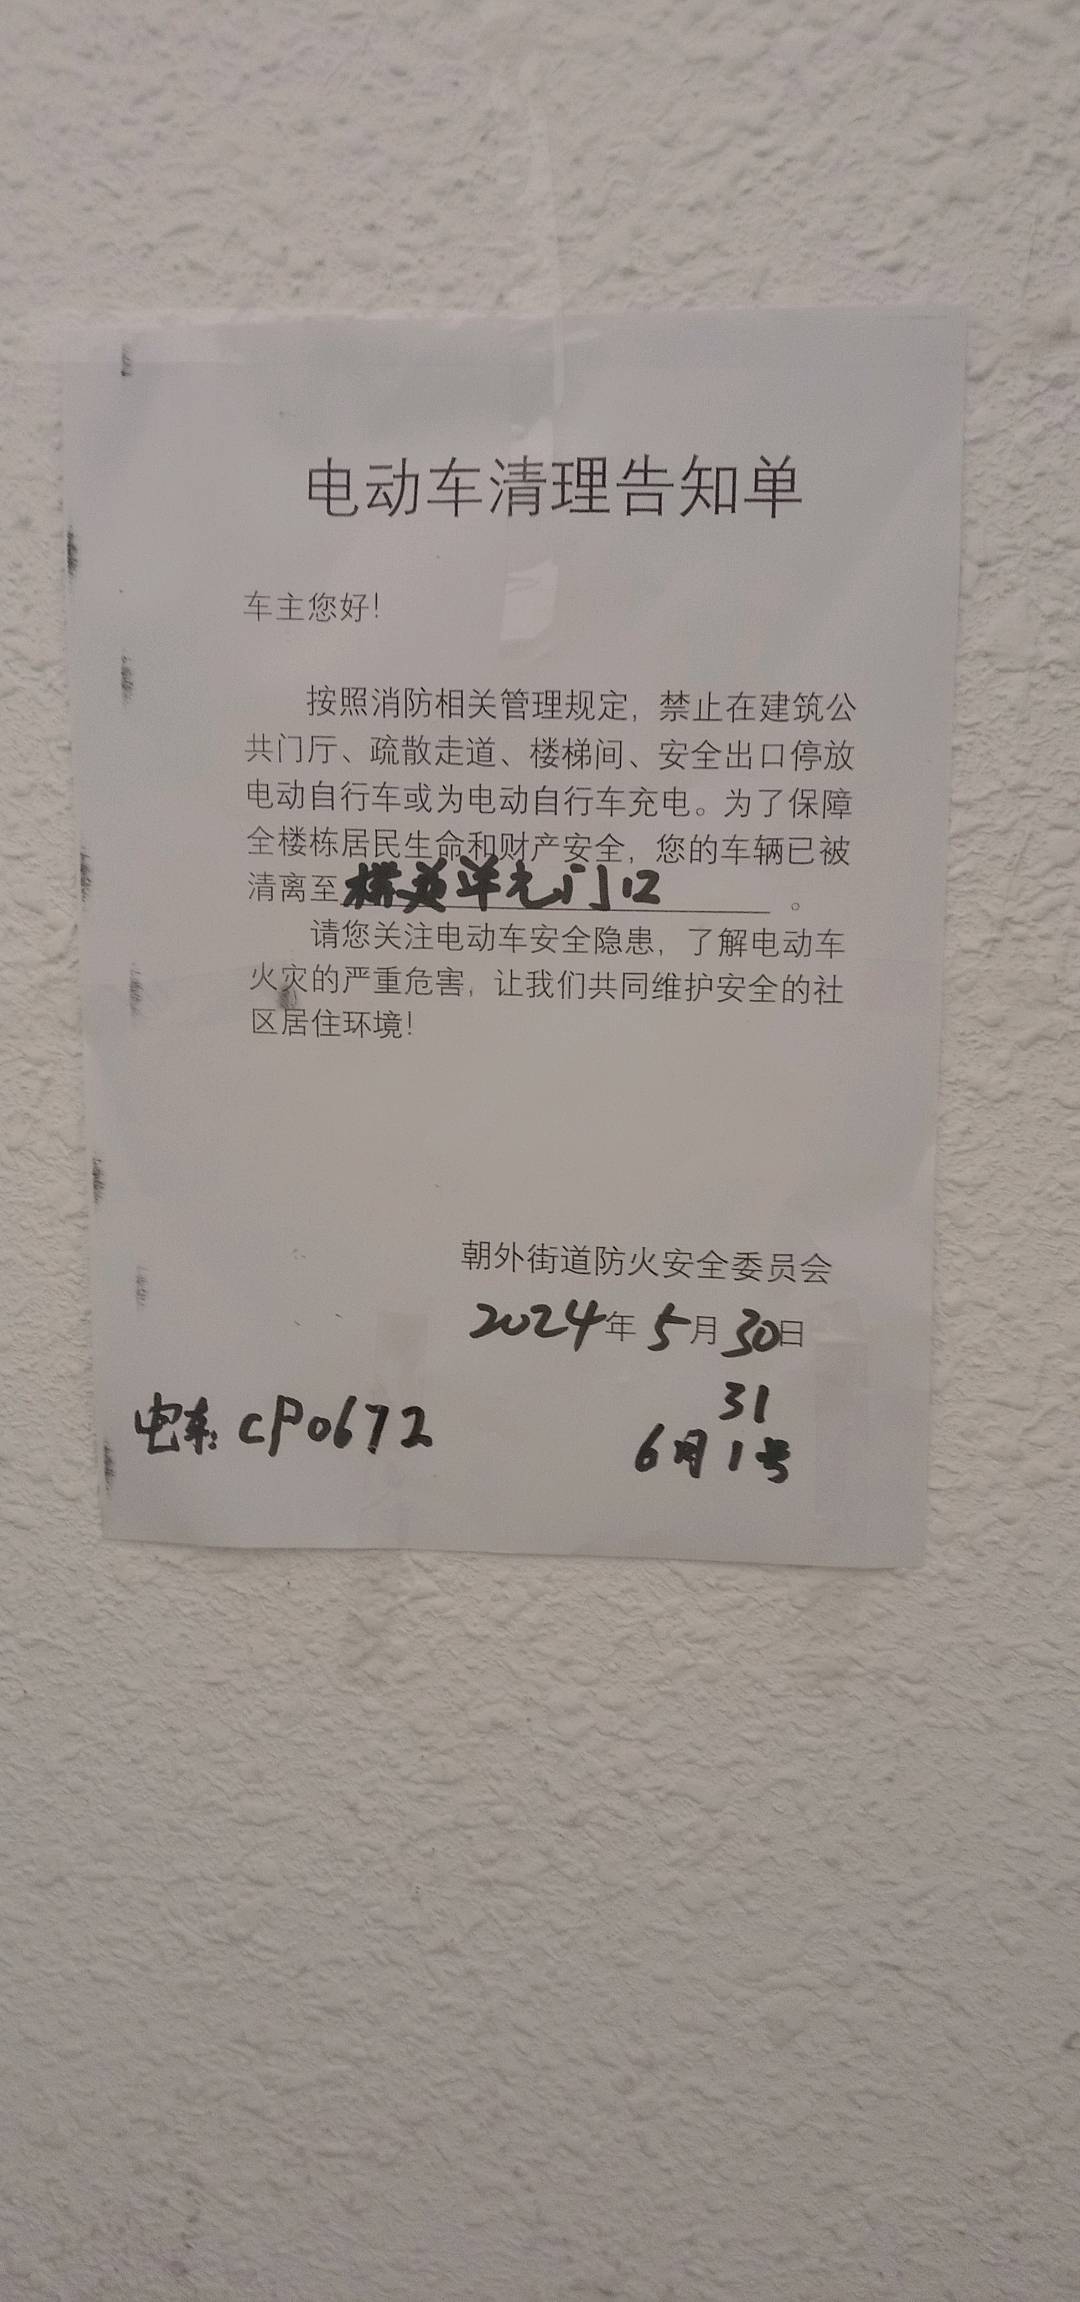 电动车清理告知单
车主您好！
按照消防相关管理规定，禁止在建筑公
共门厅、疏散走道、楼梯间、安全出口停放
电动自行车或为电动自行车充电。为了保障
全楼栋居民生命和财产安全，您的车辆已被
清离至 门口 。
请您关注电动车安全隐患，了解电动车
火灾的严重危害，让我们共同维护安全的社
区居住环境！
朝外街道防火安全委员会
2024年5月30日
31
电车：CP0672
6月1号